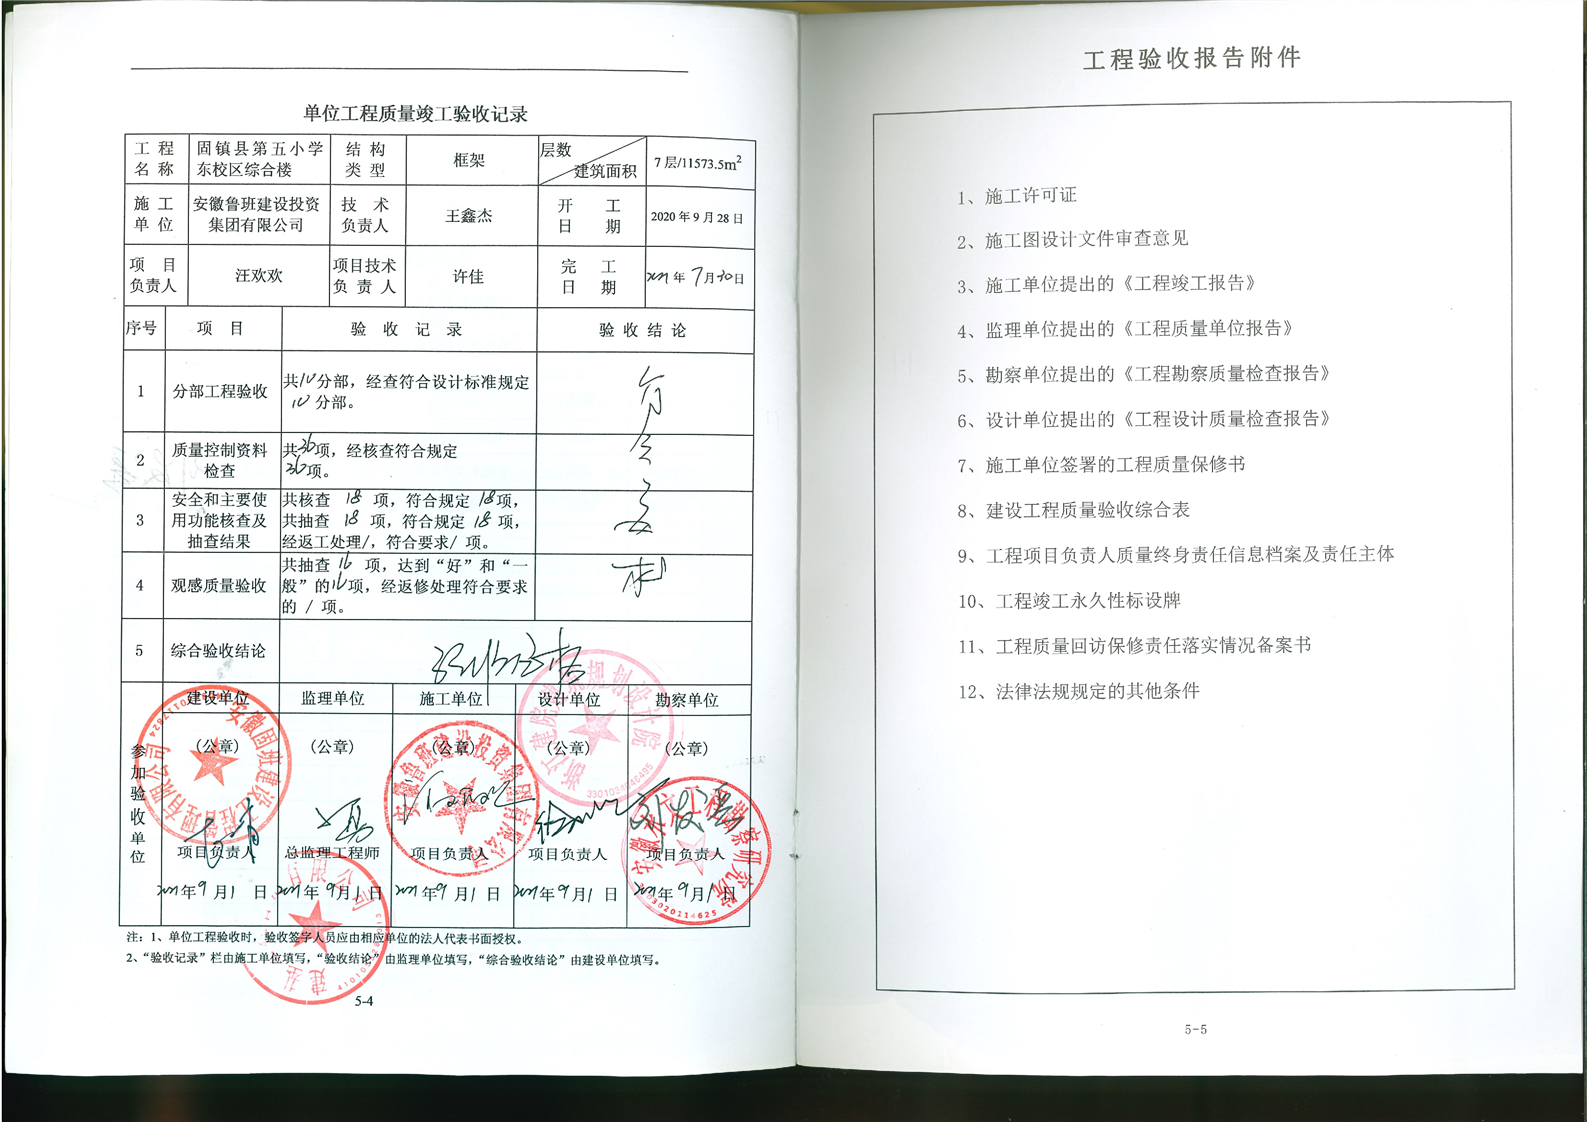 单位工程质量竣工验收记录
工 程 名 称
固镇县第五小学东校区综合楼
结 构 类 型
框架
层数 建筑面积
7层/11573.5m²
施 工 单 位
安徽鲁班建设投资集团有限公司
技 术 负责人
王鑫杰
开 工 日 期
2020年9月28日
项 目 负责人
汪欢欢
项目技术负 责 人
许佳
完 工 日 期
年7月30日
序号 项 目 验 收 记 录 验 收 结 论
1 分部工程验收
共10分部，经查符合设计标准规定
10分部。
2 质量控制资料检查
共36项，经核查符合规定
36项。
3 安全和主要使用功能核查及抽查结果
共核查 18 项，符合规定 18项，
共抽查 18 项，符合规定 18 项，
经返工处理/，符合要求/ 项。
4 观感质量验收
共抽查 16 项，达到“好”和“一
般”的16项，经返修处理符合要求
的 / 项。
5 综合验收结论
参加验收单位
建设单位 监理单位 施工单位 设计单位 勘察单位
(公章) (公章) (公章) (公章) (公章)
项目负责人 总监理工程师 项目负责人 项目负责人 项目负责人
年9月1日 年9月1日 年9月1日 年9月1日 年9月1日
安徽鲁班建设投资集团有限公司
3301024040495
注：1、单位工程验收时，验收签字人员应由相应单位的法人代表书面授权。
2、“验收记录”栏由施工单位填写，“验收结论”由监理单位填写，“综合验收结论”由建设单位填写。
5-4
工程验收报告附件
1、施工许可证
2、施工图设计文件审查意见
3、施工单位提出的《工程竣工报告》
4、监理单位提出的《工程质量单位报告》
5、勘察单位提出的《工程勘察质量检查报告》
6、设计单位提出的《工程设计质量检查报告》
7、施工单位签署的工程质量保修书
8、建设工程质量验收综合表
9、工程项目负责人质量终身责任信息档案及责任主体
10、工程竣工永久性标设牌
11、工程质量回访保修责任落实情况备案书
12、法律法规规定的其他条件
5-5